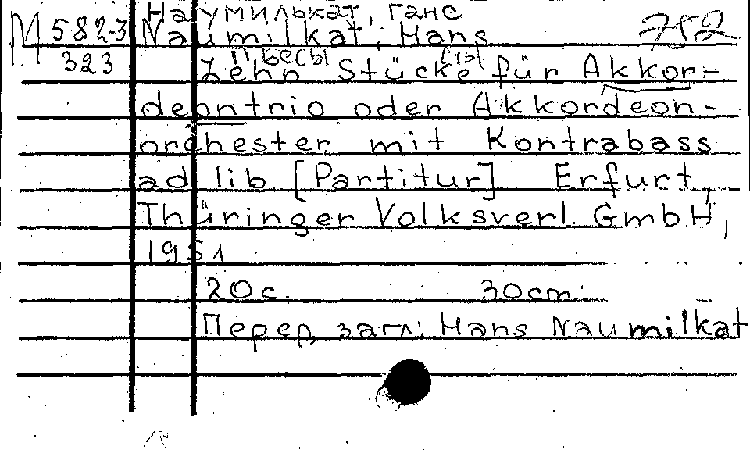 Наумилькат, Ганс
М 582-3 Naumilkat, Hans 752
323 Пьесы
Zehn Stücke für Akkor-
deontrio oder Akkordeon-
orchester mit Kontrabass
ad lib [Partitur] Erfurt,
Thüringer Volksverl. GmbH,
1951
20 с. 30cm.
Перед загл: Hans Naumilkat